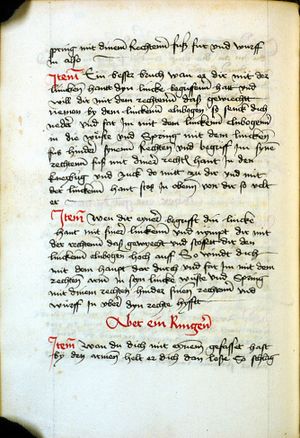 spring mit dinem Rechtenn fuß fur vnd wurff
in also
Item Ein besser bruch wan er dir mit der
lincken hant dyn lincke begriffenn hatt vnd
will dir mit dem rechtenn das gewecht
nemen by dem linckenn elnbogen so senck dich
nider vnd far im mit dem linckenn elnbogenn
in die wüste vnd Spring mit dem lincken
fuß hinder synenn Rechten vnd begriff im syne
rechtenn fuß mit diner rechten hant in den
kneybug vnd zuck do mitt zu dir vnd mit
der linckenn hant stos in obenn von dir so velt
er
Item Wen dir eyner begrifft din lincke
hant mit siner linckenn vnd nympt dir mit
der rechtenn das gewecht vnd stosset dir den
linckenn elnbogen hoch auff So windt dich
mit dem haupt dar durch vnd far im mit dem
rechten arm in syn lincke wüste vnd Spring
mit dinem rechten hinder sinen rechtenn vnd
würff in vber dyn rechte hyfft
Aber ein Ringen
Item Wan du dich mit eynem gefasset hast
by den armen helt er dich dan lose So schlag